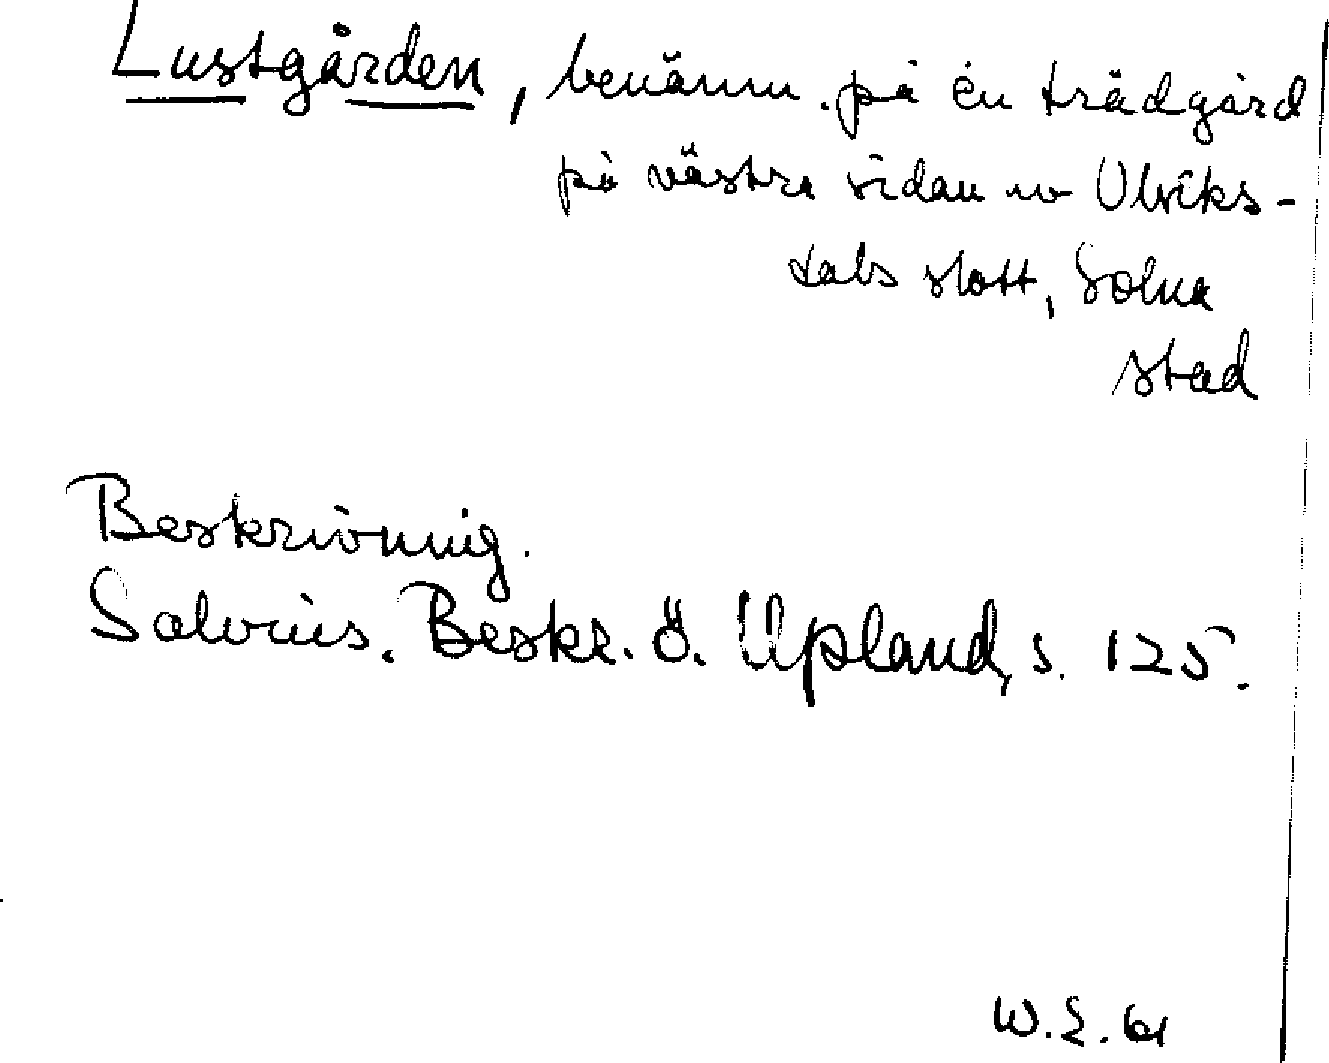 Lustgården, benämn. på en trädgård
på västra sidan av Ulriks-
dals slott, Solna
stad
Beskrivning.
Salvius. Beskr. ö. Upland, s. 125.
W. E. 61